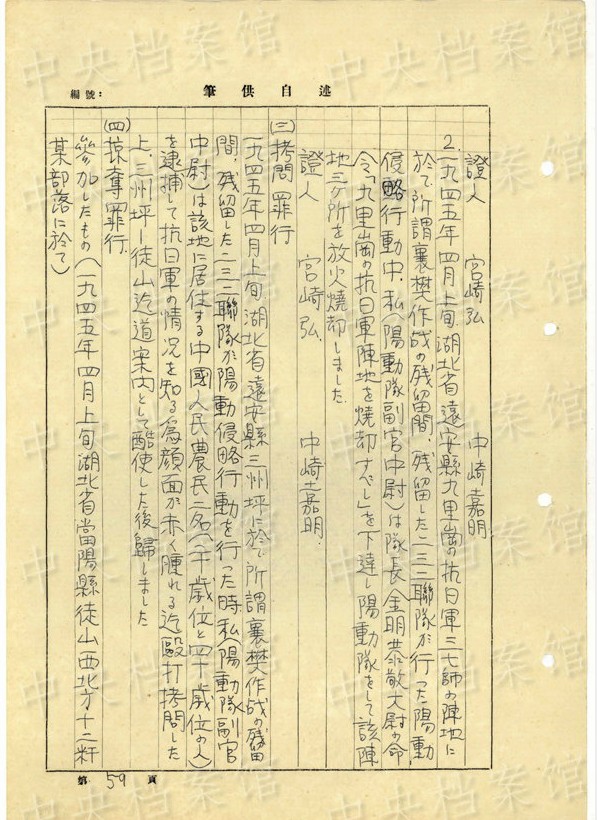 編號：
筆供自述
證人　宮崎弘　中崎嘉明
2.一九四五年四月上旬、湖北省遠安縣九里崗の抗日軍三七師の陣地に
於て、所謂襄樊作战の残留間、残留した二三二聯隊が行った陽動
侵略行動中、私(陽動隊副官中尉)は隊長(金明恭敬大尉の命
令「九里崗の抗日軍陣地を焼却すべし」を下達し陽動隊をして該陣
地三ヶ所を放火焼却しました。
證人　宮崎弘、　中崎嘉明、
(三)拷問罪行
一九四五年四月上旬、湖北省遠安縣三州坪に於て所謂襄樊作战の残留
間、残留した二三二聯隊が陽動侵略行動を行った時、私(陽動隊副官
中尉)は該地に居住する中國人民農民二名(二十歳位と四十歳位の人)
を逮捕して抗日軍の情况を知る為顔面が赤く腫れる迄毆打拷問した
上、三州坪―徒山迄道案内として酷使した後歸しました
(四)掠奪罪行、
參加したもの(一九四五年四月上旬湖北省當陽縣徒山西北方十二粁
某部落に於て)
第59頁
中央档案馆